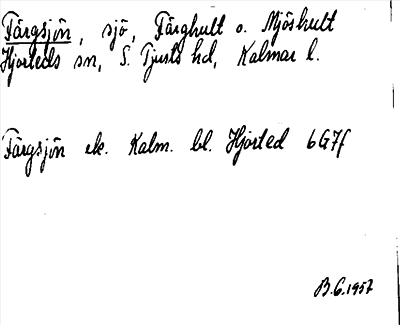 Färgsjön, sjö, Färghult o. Mjöshult
Hjorteds sn, S. Tjusts hd, Kalmar l.
Färgsjön ek. Kalm. bl. Hjorted 6G7f
B.G. 1957